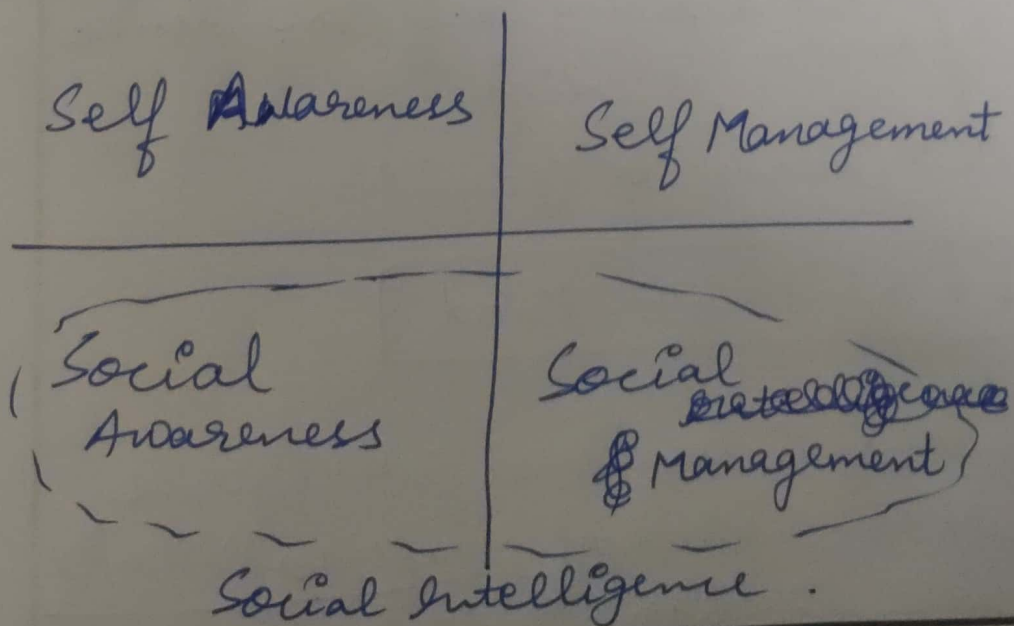 Self Awareness
Self Management
Social
Awareness
Social
Management
Social Intelligence .